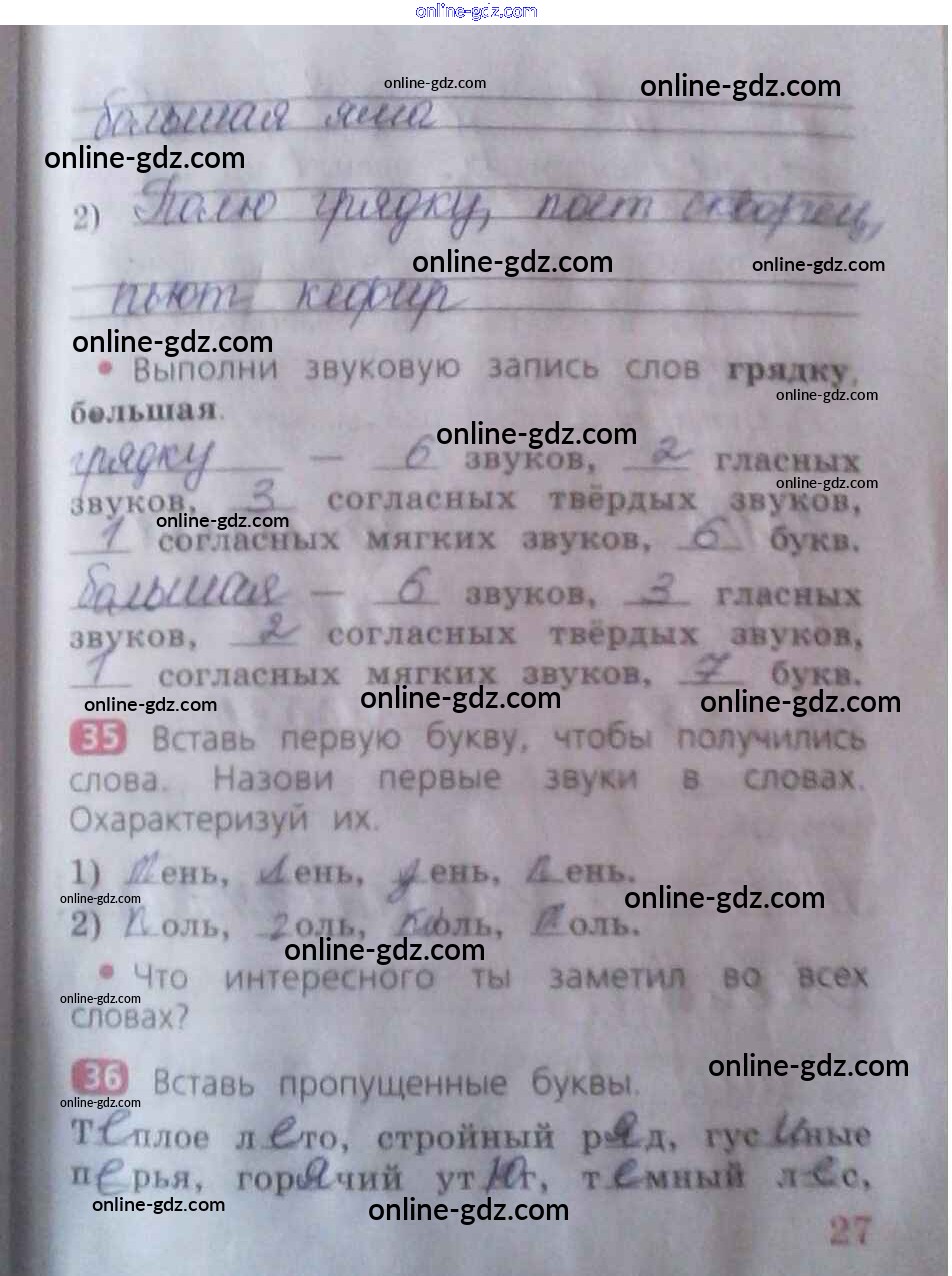 online-gdz.com
online-gdz.com
online-gdz.com
большая яма
online-gdz.com
2) Полю грядку, поёт скворец,
online-gdz.com
online-gdz.com
пьют кефир
online-gdz.com
• Выполни звуковую запись слов грядку,
online-gdz.com
большая.
online-gdz.com
грядку — 6 звуков, 2 гласных
online-gdz.com
звуков, 3 согласных твёрдых звуков,
online-gdz.com
1 согласных мягких звуков, 6 букв.
большая — 6 звуков, 3 гласных
звуков, 2 согласных твёрдых звуков,
1 согласных мягких звуков, 7 букв.
online-gdz.com
online-gdz.com
online-gdz.com
35 Вставь первую букву, чтобы получились
слова. Назови первые звуки в словах.
Охарактеризуй их.
1) ень, ень, ень, ень.
online-gdz.com
online-gdz.com
2) оль, оль, оль, оль.
online-gdz.com
• Что интересного ты заметил во всех
online-gdz.com
словах?
online-gdz.com
36 Вставь пропущенные буквы.
online-gdz.com
Теплое лето, стройный ряд, гусиные
перья, горячий утюг, темный лес,
online-gdz.com
online-gdz.com
27